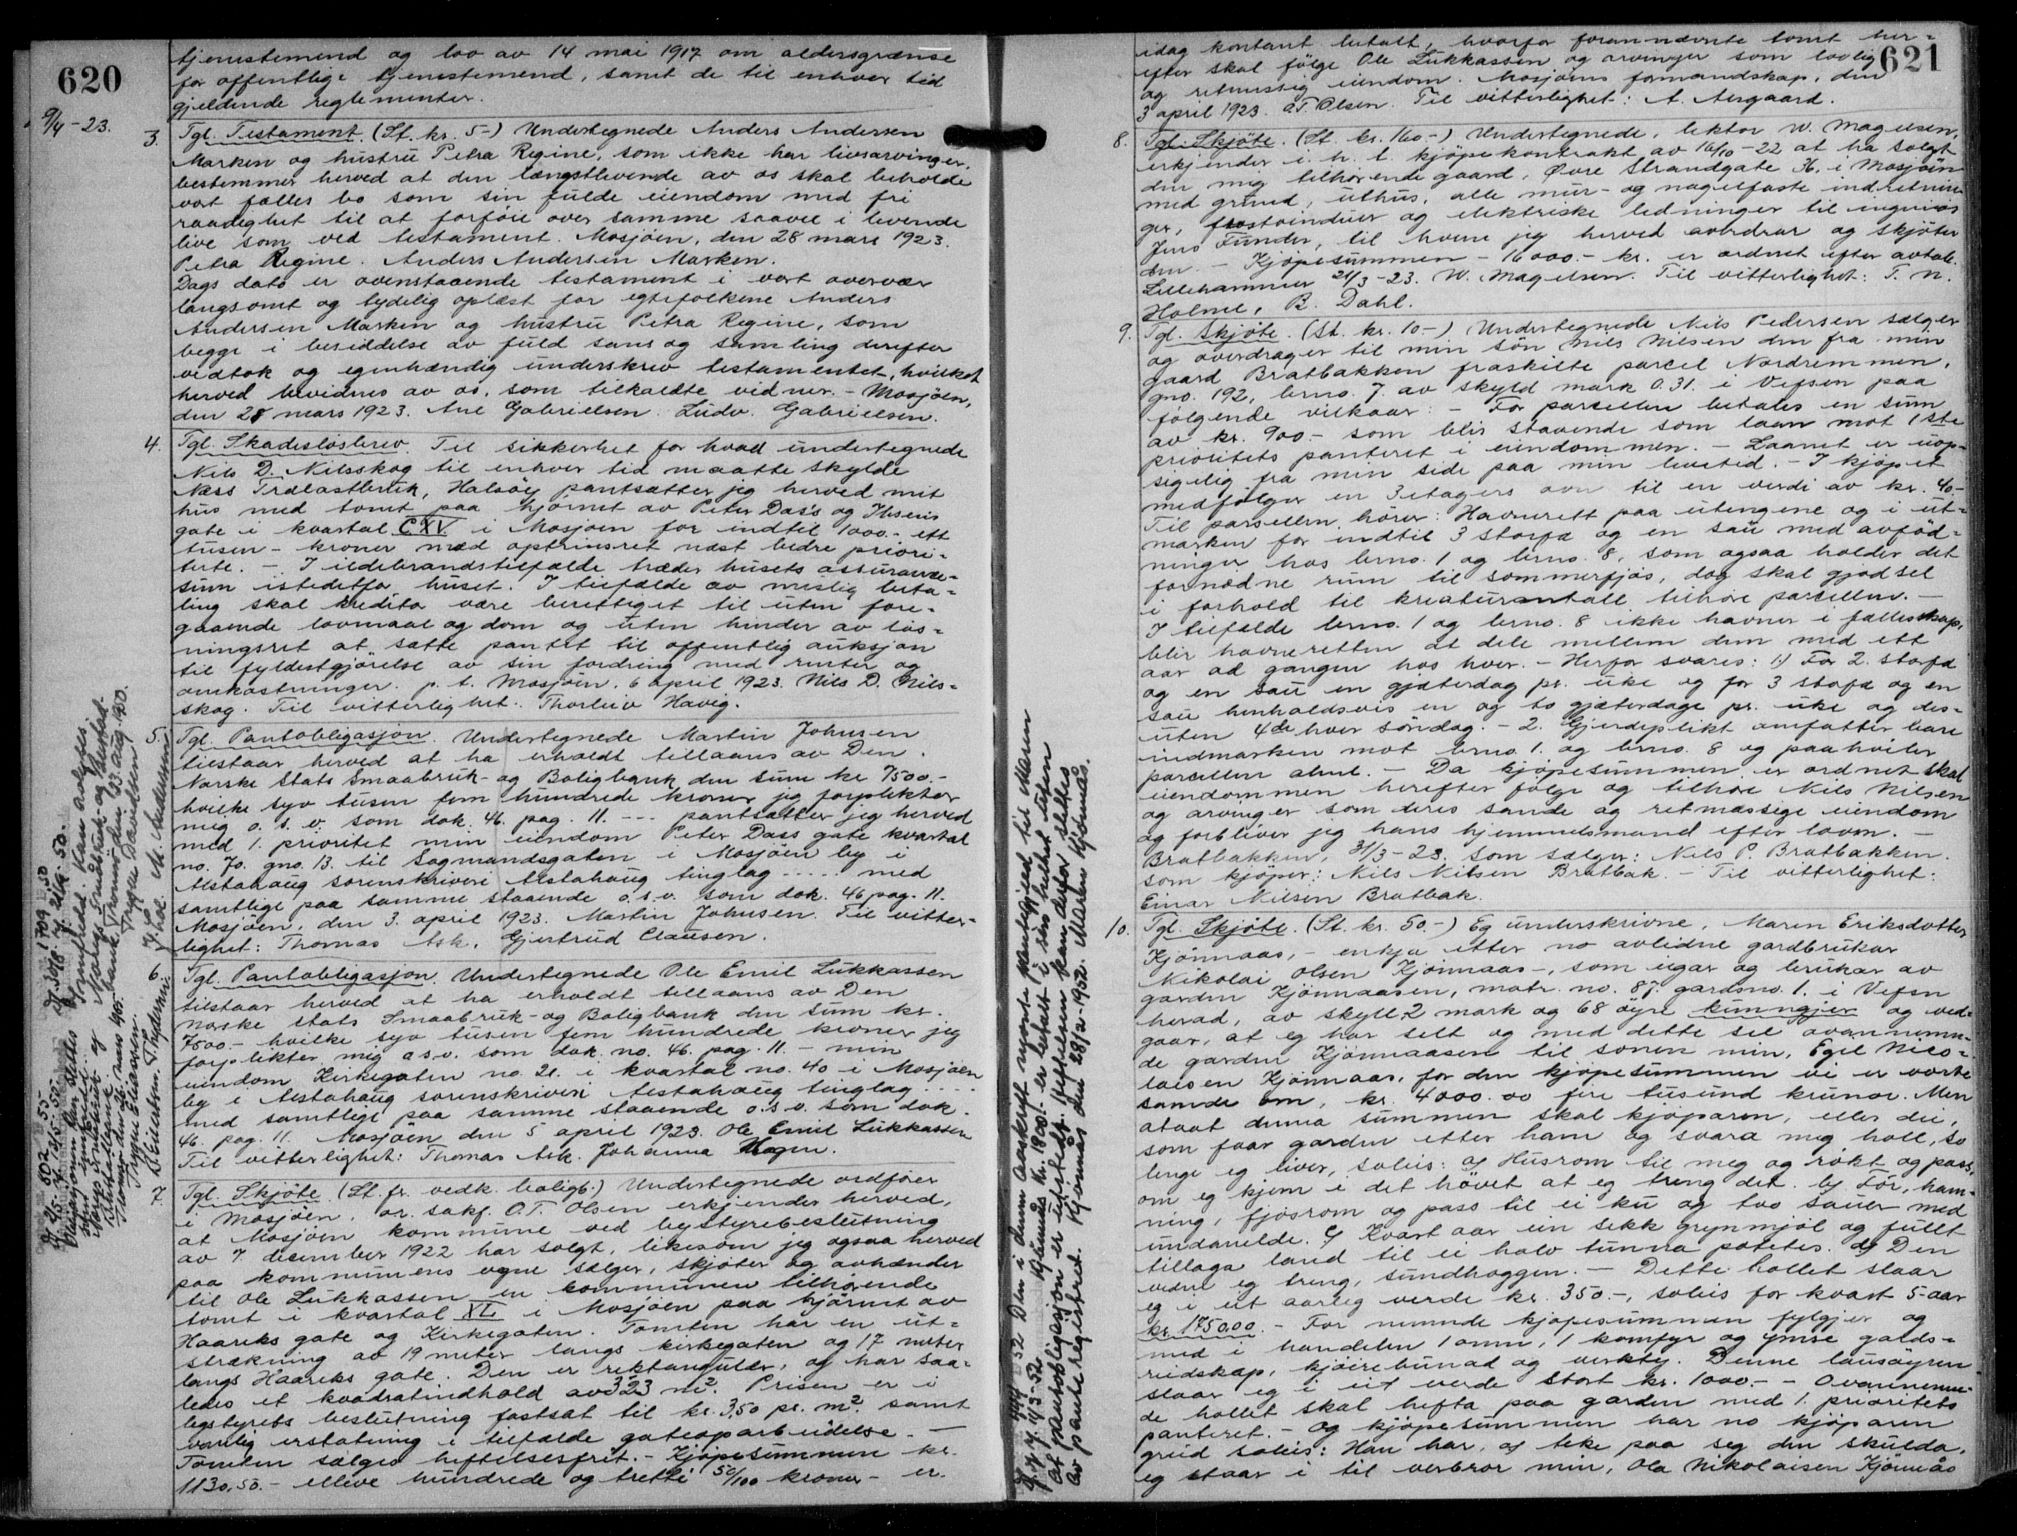 620
tjenestemend og lov av 14 mai 1917 om aldersgrænse
for offentlige tjenestemend, samt de til enhver tid
gjeldende reglementer.
9/4-23.
3. Tgl. Testament. (St. kr. 5-) Undertegnede Anders Andersen
Marken og hustru Petra Regine, som ikke har livsarvinger,
bestemmer herved at den længstlevende av os skal beholde
vort fælles bo som sin fulde eiendom med fri
raadighet til at forföie over samme saavel i levende
live som ved testament. Mosjöen, den 28 mars 1923.
Petra Regine. Anders Andersen Marken.
Dags dato er ovenstaaende testament i vort overvær
langsomt og tydelig oplæst for egtefolkene Anders
Andersen Marken og hustru Petra Regine, som
begge i besiddelse av fuld sans og samling derefter
vedtok og egenhændig underskrev testamentet, hvilket
herved bevidnes av os, som tilkaldte vidner. - Mosjöen,
den 28 mars 1923. Ane Gabrielsen. Ludv. Gabrielsen.
4. Tgl. Skadeslösbrev. Til sikkerhet for hvad undertegnede
Nils D. Nilsskog til enhver tid maatte skylde
Næss Trælastbruk, Halsöy pantsætter jeg herved mit
hus med tomt paa hjörnet av Peter Dass og Ibsens
gate i kvartal CXV i Mosjöen for indtil 1000.- ett
tusen - kroner med optrinsret næst bedre priori-
tete. - I ildebrandstilfælde træder husets assuranse-
sum istedetfor huset. I tilfælde av mislig beta-
ling skal kreditor være berettiget til uten fore-
gaaende lovmaal og dom og uten hinder av lös-
ningsret at sætte pantet til offentlig auksjon
til fyldestgjörelse av sin fordring med renter og
omkostninger. p. t. Mosjöen. 6 april 1923. Nils D. Nils-
skog. Til vitterlighet: Thorleiv Havig.
5. Tgl. Pantobligasjon. Undertegnede Martin Johnsen
tilstaar herved at ha erholdt tillaans av Den
Norske Stats Smaabruk- og Boligbank den sum kr. 7500.-
hvilke syv tusen fem hundrede kroner jeg forplikter
mig o. s. v. som dok. 46. pag. 11. --- pantsætter jeg herved
med 1. prioritet min eiendom Peter Dass gate kvartal
no. 70. gno. 13. til Sagmandsgaten i Mosjöen by i
Alstahaug sorenskriveri Alstahaug tinglag ..... med
samtlige paa samme staaende o.s.v. som dok. 46 pag. 11.
Mosjöen, den 3. april 1923. Martin Johnsen. Til vitter-
lighet: Thomas Ask. Gjertrud Clausen.
6. Tgl. Pantobligasjon. Undertegnede Ole Emil Lukkassen
tilstaar herved at ha erholdt tillaans av Den
norske stats Smaabruk- og Boligbank den sum kr.
7500.- hvilke syv tusen fem hundrede kroner jeg
forplikter mig o.s.v. som dok. no. 46. pag. 11. - min
eiendom Kirkegaten no. 21. i kvartal no. 40 i Mosjöen
by i Alstahaug sorenskriveri Alstahaug tinglag ....
med samtlige paa samme staaende o.s.v. som dok.
46. pag. 11. Mosjöen den 5 april 1923. Ole Emil Lukkassen
Til vitterlighet: Thomas Ask. Johanna Hagen.
7. Tgl. Skjöte (St. fr. vedk. boligb.) Undertegnede ordförer
i Mosjöen, or. sakf. O.T. Olsen erkjender herved,
at Mosjöen kommune ved bystyrebeslutning
av 7. desember 1922 har solgt, likesom jeg ogsaa herved
paa kommunens vegne sælger, skjöter og avhænder
til Ole Lukkassen en kommunen tilhörende
tomt i kvartal XL i Mosjöen paa hjörnet av
Haareks gate og Kirkegaten. Tomten har en ut-
strækning av 19 meter langs kirkegaten og 17 meter
langs Haareks gate. Den er rektangulær, og har saa-
ledes et kvadratindhold av 323 m². Prisen er i
bystyrets beslutning fastsat til kr. 3,50 pr. m². samt
vanlig erstatning i tilfælde gateoparbeidelse. -
Tomten sælges heftelsesfrit. - Kjöpesummen kr.
1130,50.- elleve hundrede og tretti 50/100 kroner - er
621
idag kontant betalt, hvorfor forannævnte tomt her-
efter skal fölge Ole Lukkassen og arvinger som lovlig
og retmessig eiendom. Mosjöens formandskap, den
3 april 1923. O.T. Olsen. Til vitterlighet: A. Aergaard.
8. Tgl. Skjöte. (St. kr. 160-) Undertegnede, lektor W. Magelsen,
erkjender i. h. t. kjöpekontrakt av 16/10-22 at ha solgt
den mig tilhörende gaard, Övre Strandgate 36, i Mosjöen
med grund, uthus, alle mur- og nagelfaste indretnin-
ger, og elektriske ledninger til ingeniör
Jens Funder, til hvem jeg herved avhdrar og skjöter
den. - Kjöpesummen - 16000.- kr. er ordnet efter avtale.
Lillehammer 21/3-23. W. Magelsen. Til vitterlighet: T. N.
Holme, B. Dahl.
9. Tgl. Skjöte. (St. kr. 10-) Undertegnede Nils Pedersen sælger
og overdrager til min sön Nils Nilsen den fra min
gaard Bratbakken fraskilte parcel Nordremmen,
gno. 192, brno. 7 av skyld mark 0.31. i Vefsen paa
fölgende vilkaar: - For parcellen betales en sum
av kr. 900.- som blir staaende som laan mot 1ste
prioritets panteret i eiendommen. - Laanet er uop-
sigelig fra min side paa min levetid. - I kjöpet
medfölger en 3etagers ovn til en verdi av kr. 40-
Til parsellen hörer: Havnerett paa utengene og i ut-
marken for indtil 3 storfæ og en sau med avföd-
ninger hos brno. 1 og brno. 8, som ogsaa holder det
fornödne rum til sommerfjös, dog skal gjödsel
i forhold til kreaturantall tilhöre parcellen. -
I tilfælde brno. 1 og brno. 8 ikke havner i fællesskap,
blir havneretten at dele mellem dem med ett
aar ad gangen hos hver. - Herfor svares: 1) For 2. storfæ
og en sau en gjæterdag pr. uke og for 3 storfæ og en
sau henholdsvis en og to gjæterdage pr. uke og des-
uten 4de hver söndag. - 2. Gjerdeplikt omfatter bare
indmarken mot brno. 1. og brno. 8 og paahviler
parcellen alene. - Da kjöpesummen er ordnet skal
eiendommen herefter fölge og tilhöre Nils Nilsen
og arvinger som deres sande og retmæssige eiendom
og forbliver jeg hans hjemmelsmand efter loven. -
Bratbakken, 31/3-23. Som sælger: Nils P. Bratbakken.
som kjöper: Nils Nilsen Bratbak. - Til vitterlighet:
Einar Nilsen Bratbak.
10. Tgl. Skjöte. (St. kr. 50.-) Eg underskrivne, Maren Eriksdotter
Kjönnaas, - enkja etter no avlidne gardbrukar
Nikolai Olsen Kjönnaas -, som eigar og brukar av
garden Kjönnaasen, matr. no. 87. gardsno. 1. i Vefsn
herad, av skyll 2 mark og 68 öyre kunngjer og ved-
gaar, at eg har selt og med dette sel ovannemn-
de garden Kjönnaasen til sonen min, Egil Nico-
laisen Kjönnaas, for den kjöpesummen vi er vorte
samde om, kr. 4000.00 fire tusund krunor. Men
ataat denna summen skal kjöparen, eller dei,
som faar garden etter ham og svara meg holl, so
lenge eg liver, soleis: a) Husrom til meg og rökt og pass,
om eg kjem i det hövet at eg treng det. b) För, ham-
ning, fjösrom og pass til ei ku og tvo sauer med
undanelde. c) Kvart aar ein sekk grynmjöl og fullt
tillaga land til ei halv tunna potetes. d) Den
veden eg treng, sundhoggen. - Dette hollet staar
eg i eit aarleg verde kr. 350.-, soleis for kvart 5-aar
kr. 1750.00. - For nemnde kjöpesummen fylgjer og
med i handelen 1 omn, 1 komfyr og ymse gards-
reidskap, kjöirebunad og verkty. Denne lausöyren
staar eg i eit verde stort kr. 1000.- - Ovannemn-
de hollet skal hefta paa garden med 1. prioritets
panteret. - Og kjöpesummen har no kjöparen
greid soleis: Han har, a) teke paa seg den skulda,
eg staar i til verbror min, Ola Nikolaisen Kjönnås